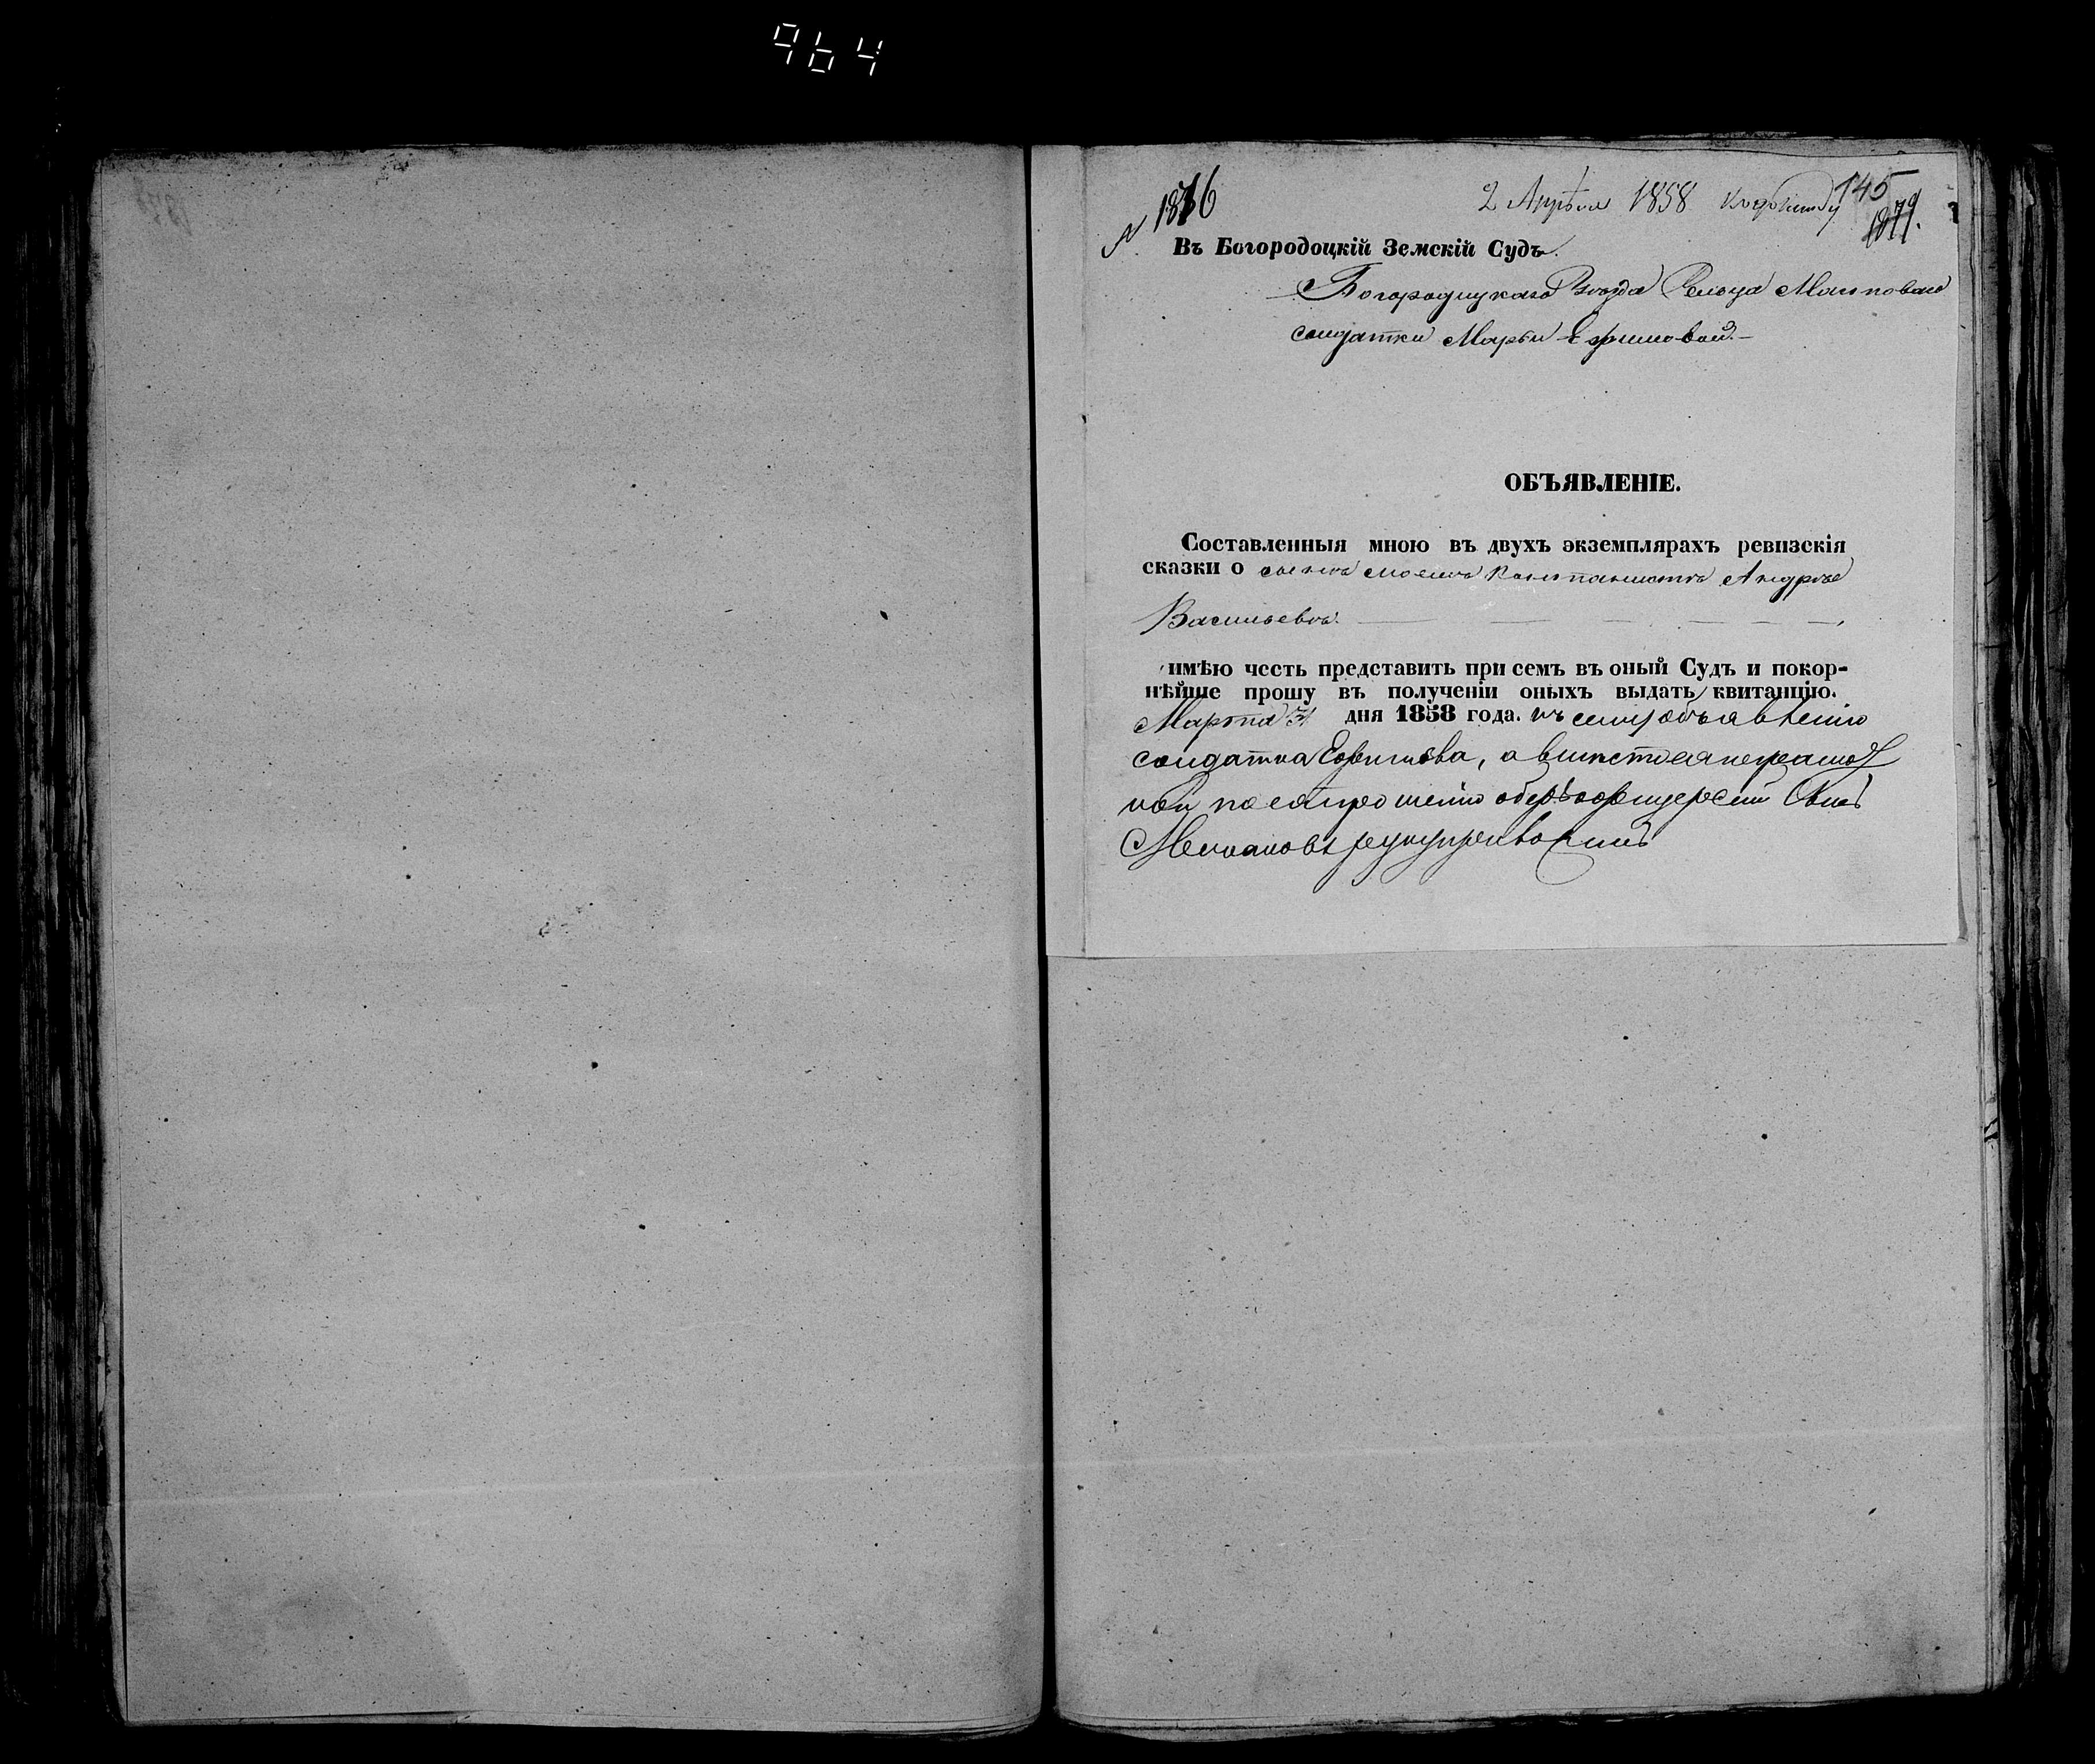 964
N 1816
2 Апрѣля 1858
145
1079.
Въ Богородоцкій Земскій Судъ.
Богородицкаго Уѣзда Сельца
солдатки Марьи Ефимовой.—
ОБЪЯВЛЕНІЕ.
Составленныя мною въ двухъ экземплярахъ ревизскія
сказки о сынѣ моемъ Кантонистѣ Андрѣе
Васильевѣ.
имѣю честь представить при семъ въ оный Судъ и покор-
нѣйше прошу въ полученіи оныхъ выдать квитанцію.
Марта 31 дня 1858 года. къ сему объявленію
солдатка Ефимова, а вместо ея неграмот
ной по ея прошению оберъ офицерскій Сынъ
руку приложилъ